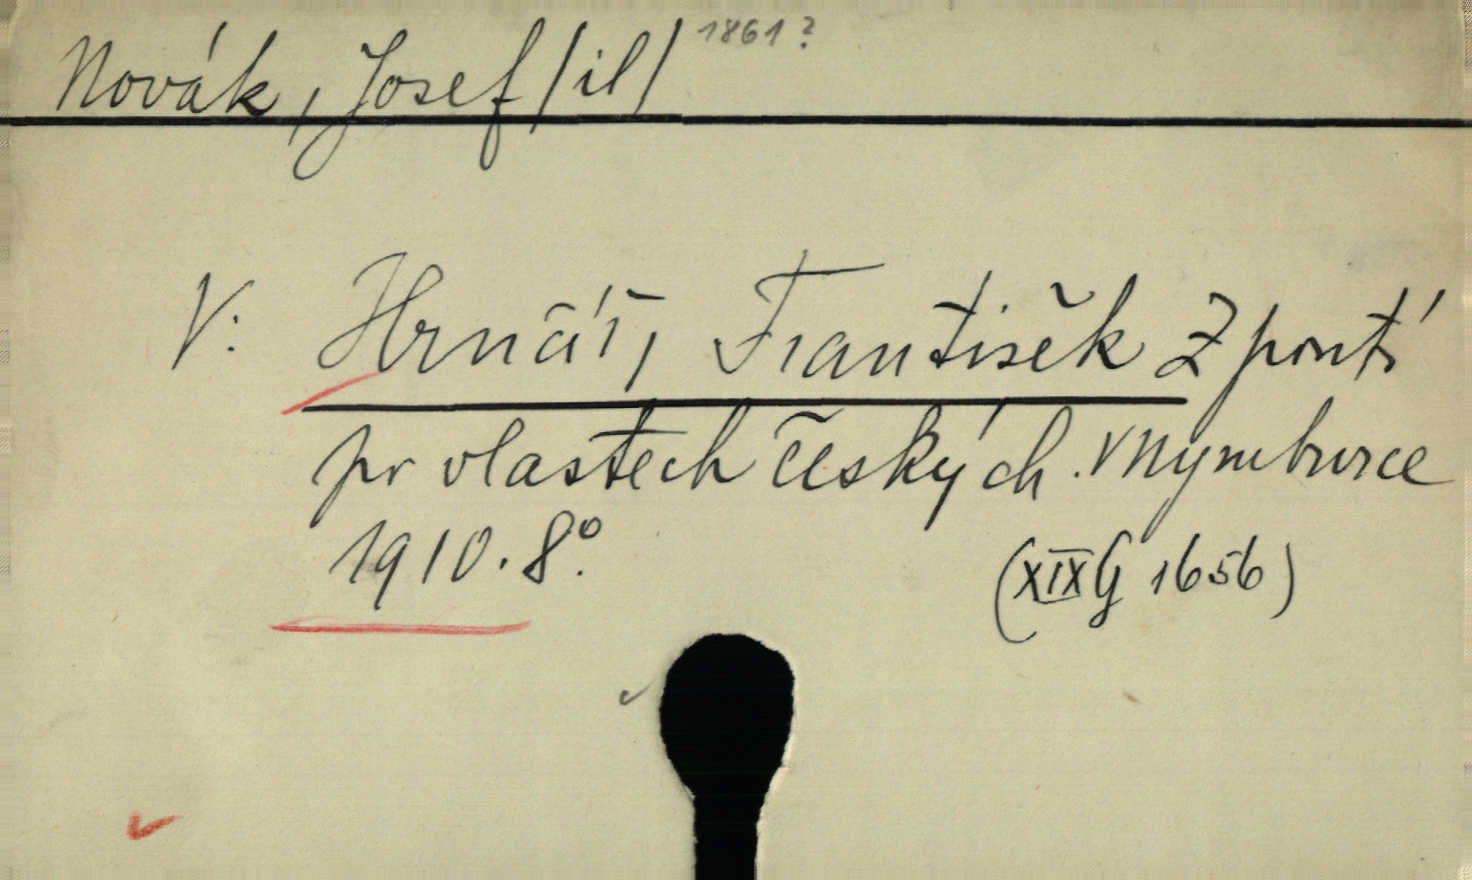 Novák, Josef /il/ 1861?
V: Hrnčíř, František Z poutí
po vlastech českých. V Nymburce
1910. 8°.
(XIX G 1656)